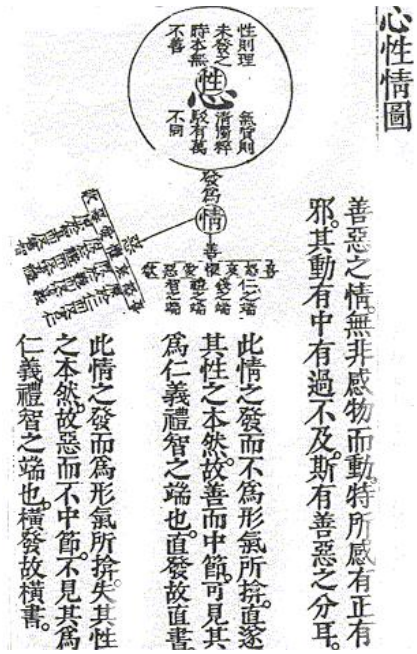 心性情圖
善惡之情。無非感物而動。特所感有正有
邪。其動有中有過不及。斯有善惡之分耳。
性則理
未發之
時本無
不善
氣質則
清濁粹
駁有萬
不同
性
心
發爲
情
善
喜怒哀懼愛惡欲
仁之端
義之端
禮之端
智之端
惡
此情之發而不爲形氣所揜。直遂
其性之本然。故善而中節。可見其
爲仁義禮智之端也。直發故直書
此情之發而爲形氣所揜。失其性
之本然。故惡而不中節。不見其爲
仁義禮智之端也。橫發故橫書。